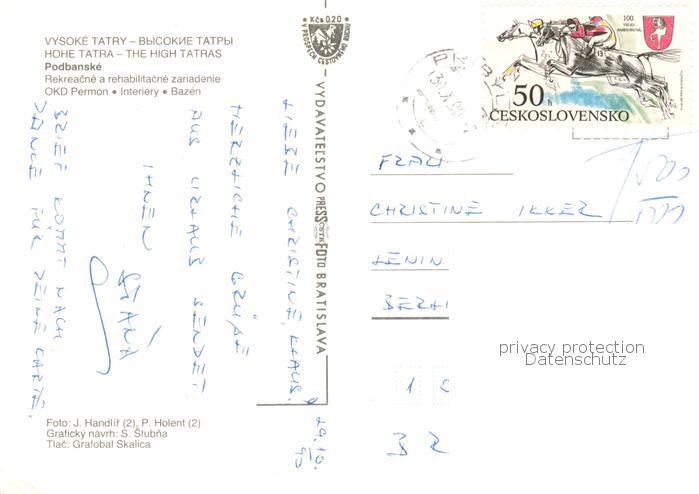 VYSOKÉ TATRY – ВЫСОКИЕ ТАТРЫ
HOHE TATRA – THE HIGH TATRAS
Podbanské
Rekreačné a rehabilitačné zariadenie
OKD Permon • Interiéry • Bazén
Kčs 0,20
VYDAVATEĽSTVO PRESSFOTO BRATISLAVA
100.
VELKÁ
PARDUBICKÁ
50 h
ČESKOSLOVENSKO
LIEBE CHRISTINE, KLAUS!
HERZLICHE GRÜßE
AUS URLAUB SENDET
IHNEN
BRIEF KOMMT NACH.
DANKE FÜR DEINE KARTE.
29.10.
90
FRAU
CHRISTINE IKKER
LENIN
BERLI
1
privacy protection
Datenschutz
Foto: J. Handlíř (2), P. Holent (2)
Grafický návrh: S. Štubňa
Tlač: Grafobal Skalica